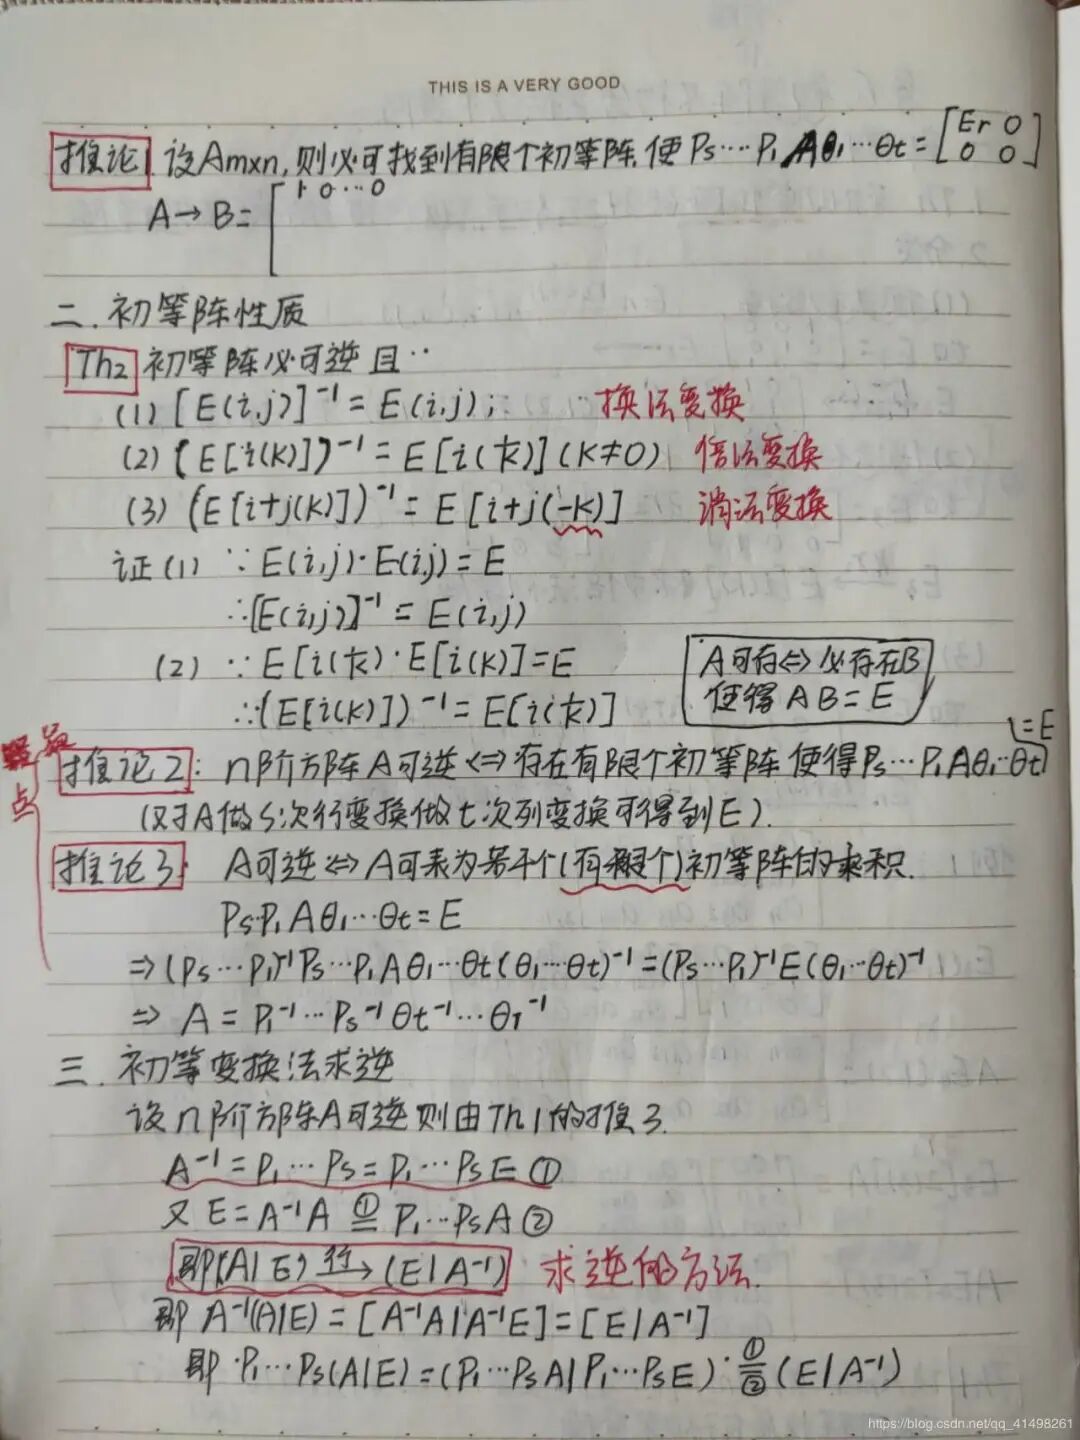 THIS IS A VERY GOOD
推论1 设Amxn,则必可找到有限个初等阵,使Ps…P1Aθ1…θt=[Er 0
0 0]
A→B=[1 0…0
二.初等阵性质
Th2 初等阵必可逆且··
(1) [E(i,j)]⁻¹=E(i,j); 换法变换
(2) (E[i(k)])⁻¹=E[i(1/k)](k≠0) 倍法变换
(3) (E[i+j(k)])⁻¹=E[i+j(-k)] 消法变换
证(1) ∵E(i,j)·E(i,j)=E
∴[E(i,j)]⁻¹=E(i,j)
(2) ∵E[i(1/k)·E[i(k)]=E
∴(E[i(k)])⁻¹=E[i(1/k)]
A可存⇔必存在B
使得AB=E
点
推论2:n阶方阵A可逆⇔存在有限个初等阵使得Ps…P1Aθ1…θt=E
(对A做s次行变换做t次列变换可得到E).
推论3 A可逆⇔A可表为若干个(有限个)初等阵的乘积.
Ps·P1Aθ1…θt=E
⇒(Ps…P1)⁻¹Ps…P1Aθ1…θt(θ1…θt)⁻¹=(Ps…P1)⁻¹E(θ1…θt)⁻¹
⇒A=P1⁻¹…Ps⁻¹θt⁻¹…θ1⁻¹
三.初等变换法求逆
设n阶方阵A可逆则由Th1的推3.
A⁻¹=P1…Ps=P1…PsE①
又E=A⁻¹A ①= P1…PsA②
即(A|E)行→(E|A⁻¹) 求逆的方法.
即A⁻¹(A|E)=[A⁻¹A|A⁻¹E]=[E|A⁻¹]
即·P1…Ps(A|E)=(P1…PsA|P1…PsE)·①=②(E|A⁻¹)
https://blog.csdn.net/qq_41498261